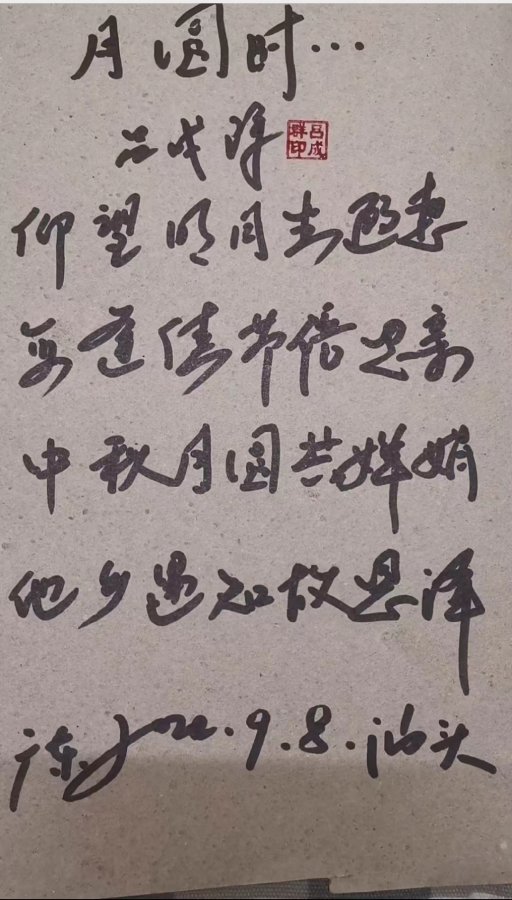 月圆时…
吕成群
吕成群印
仰望明月去遐想
每逢佳节倍思亲
中秋月圆共婵娟
他乡遇知故恩泽
广东 2022.9.8.汕头